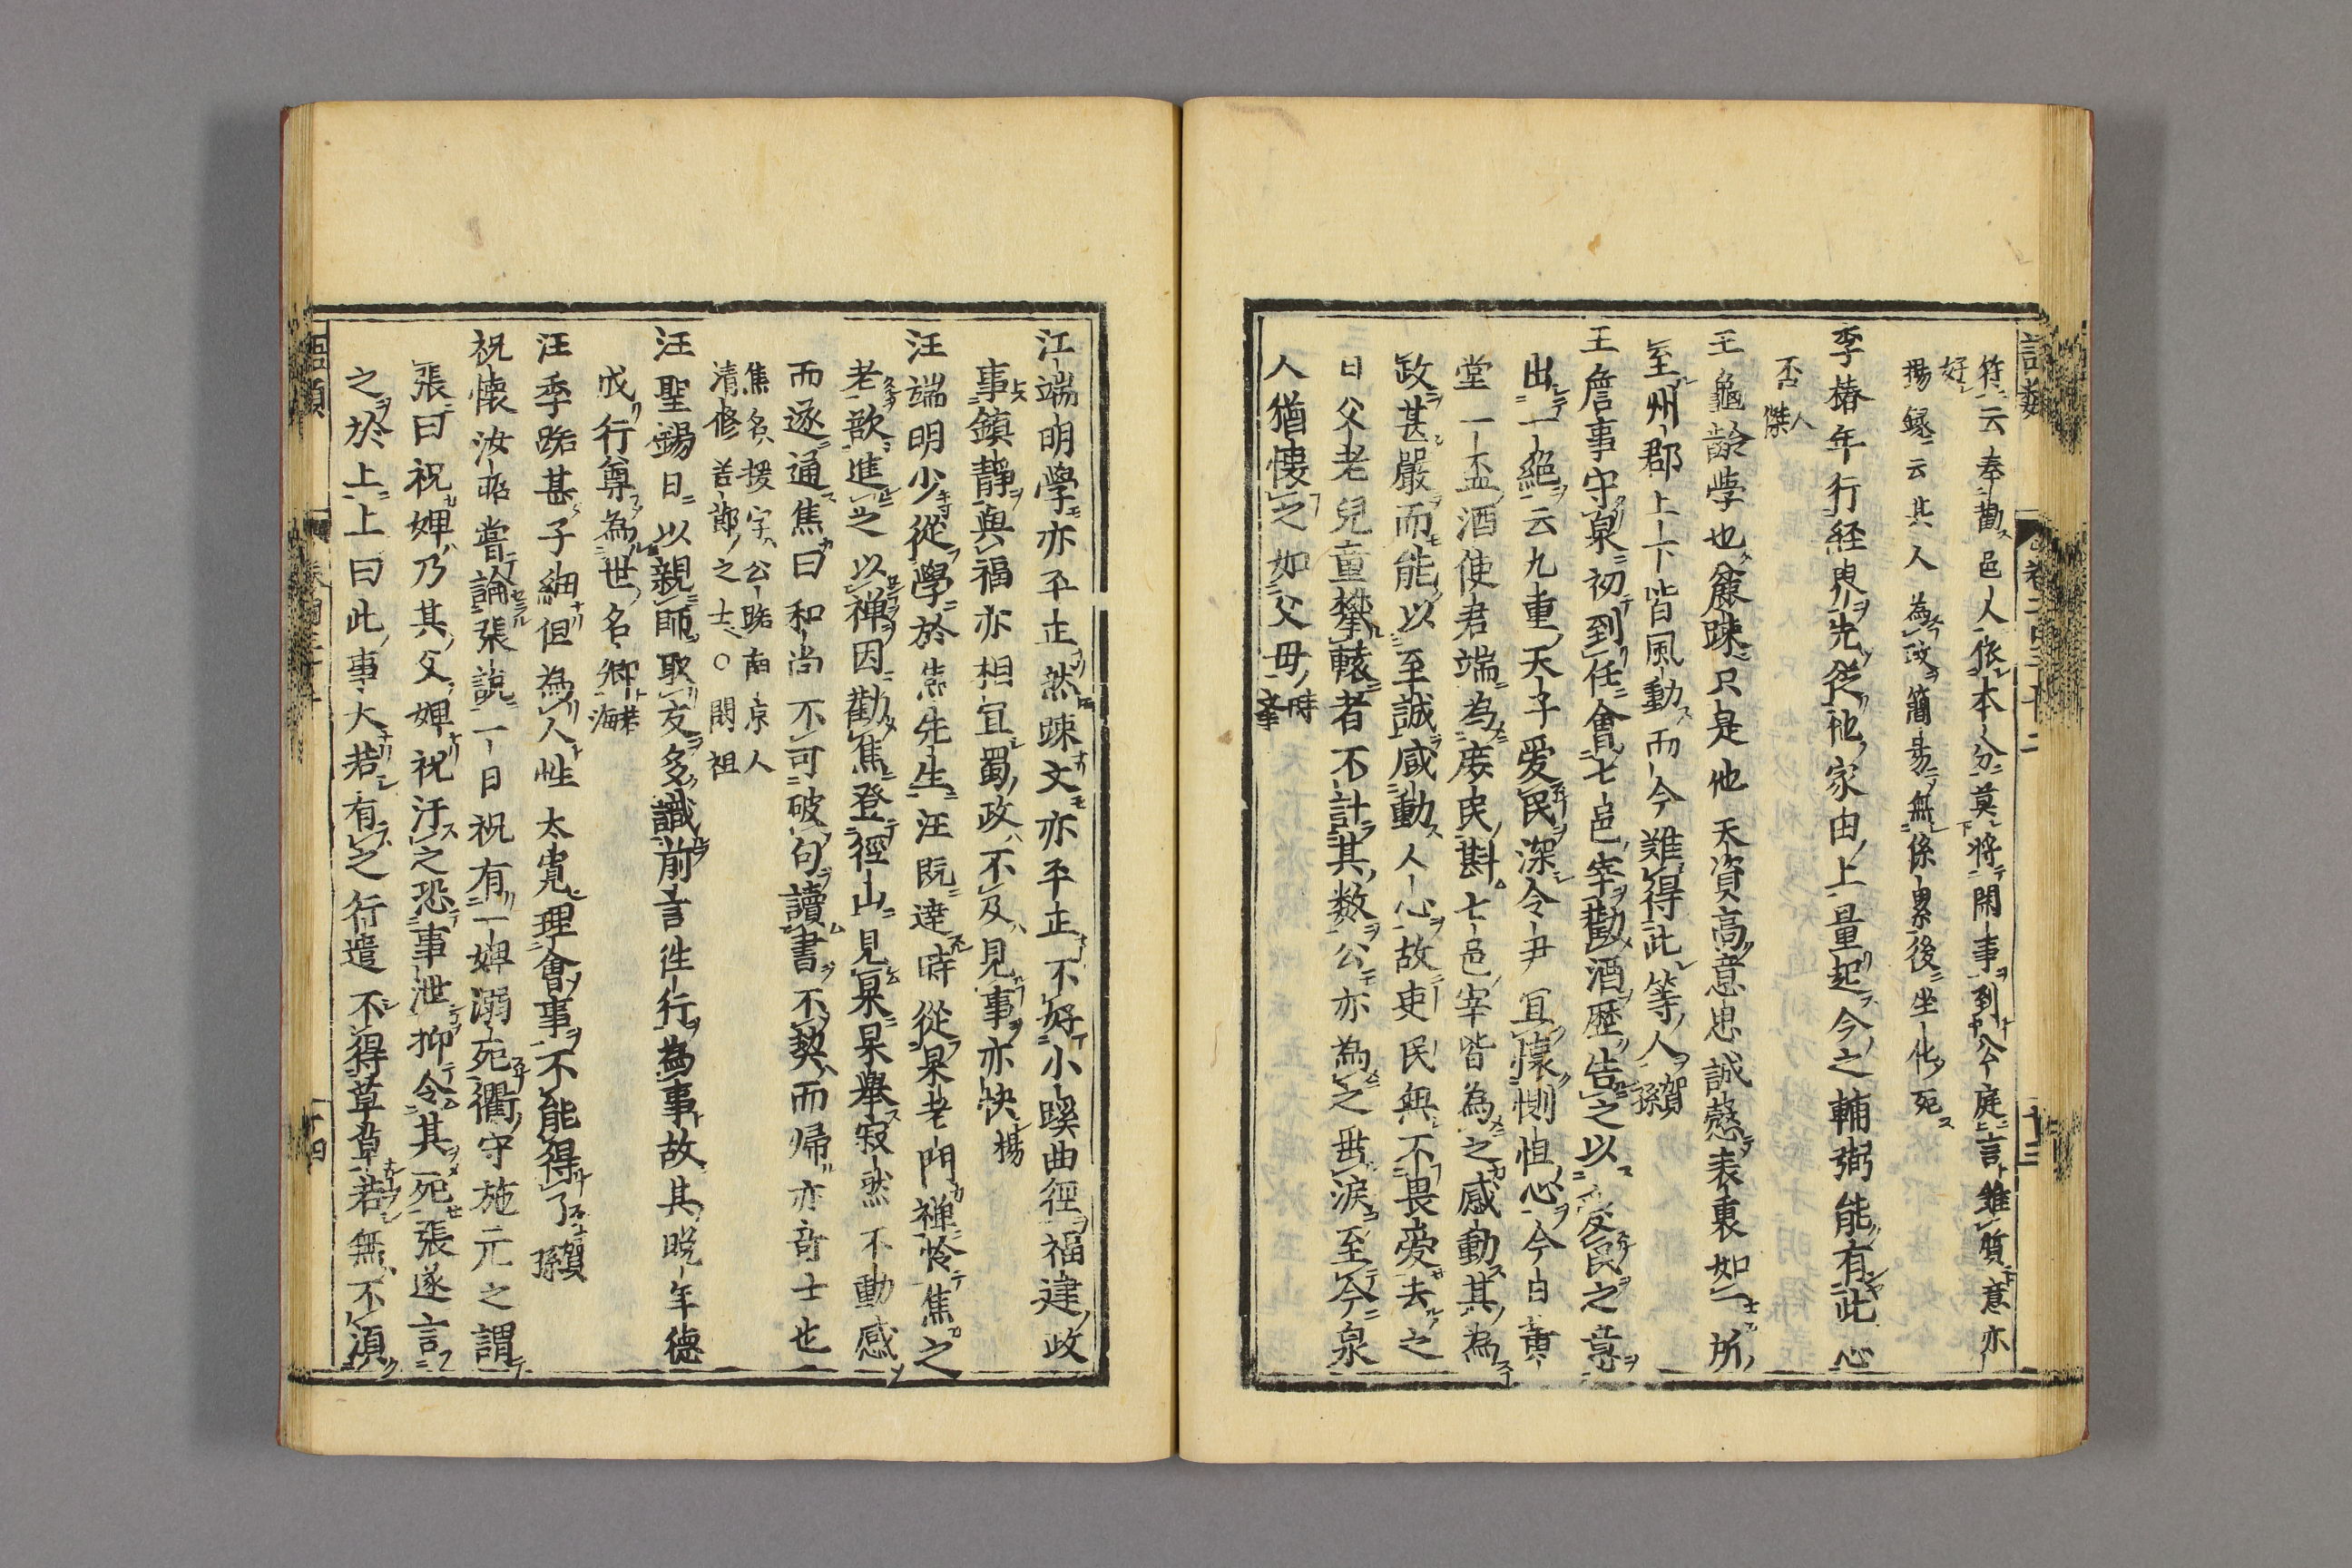 符云奉勸邑人依本分莫將閑事到公庭言雖質意亦
好
楊録云其人為政簡易無係累後坐化死
李椿年行経界先從他家田上量起今之輔弼能有此心
否人傑
王龜齡學也麄踈只是他天資高意思誠慤表裏如一所
至州郡上下皆風動而今難得此等人賀孫
王詹事守泉初到任會七邑宰勸酒歷告之以愛民之意
出一絕云九重天子爱民深令尹宜懷惻怛心今日黄
堂一盃酒使君端為庻民斟七邑宰皆為之感動其為
政甚嚴而能以至誠感動人心故吏民無不畏爱去之
日父老兒童攀轅者不計其数公亦為之垂淚至今泉
人猶懷之如父母時舉
江端明學亦平正然踈文亦平正不好小蹊曲徑福建政
事鎮靜與福亦相宜蜀政不及見事亦快楊
汪端明少從學於焦先生汪既達時從杲老門禅怜焦之
老欲進之以禅因勸焦登徑山見杲杲舉寂然不動感
而遂通焦曰和尚不可破句讀書不契而帰亦竒士也
焦名援字公路南京人
清修苦節之士〇閎祖
汪聖錫日以親師取友多識前言往行為事故其晚年德
成行尊為世名卿若海
汪季路甚子細但為人性太寛理會事不能得了賀孫
祝懷汝昭嘗論張説一日祝有一婢溺死衢守施元之謂
張曰祝婢乃其父婢祝汙之恐事泄抑令其死張遂言
之於上上曰此事大若有之行遣不得草草若無不湏
語類
卷一百三十二
十三
十四